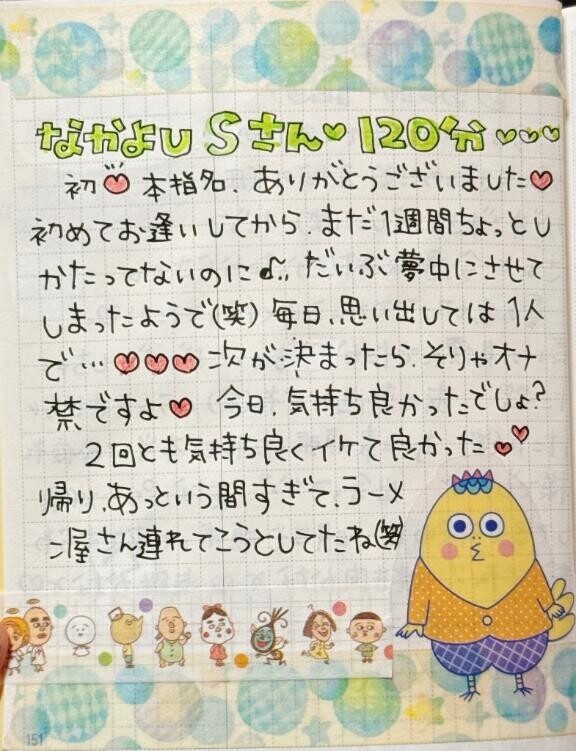 なかよしSさん♡120分♡♡♡
初♡本指名、ありがとうございました♡
初めてお逢いしてから、まだ1週間ちょっとし
かたってないのに♪,, だいぶ夢中にさせて
しまったようで(笑) 毎日、思い出しては1人
で…♡♡♡ 次が決まったら、そりゃオナ
禁ですよ♡ 今日、気持ち良かったでしょ?
2回とも気持ち良くイケて良かった♡♡
帰り、あっという間すぎて、ラーメ
ン屋さん連れてこうとしてたね(笑)
151